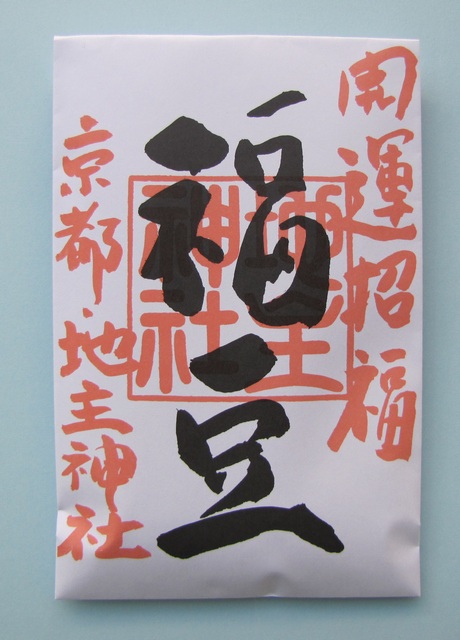 開運招福
福豆
京都・地主神社
地主神社